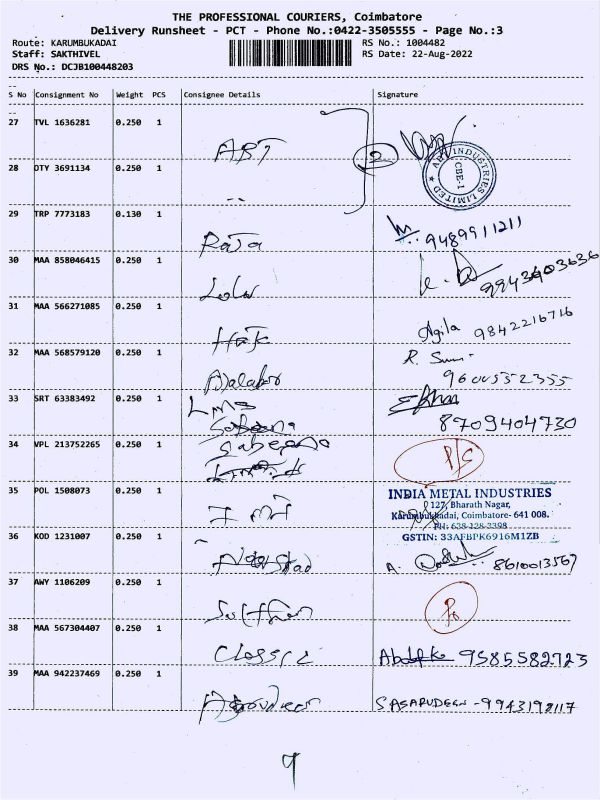 THE PROFESSIONAL COURIERS, Coimbatore
Delivery Runsheet - PCT - Phone No.:0422-3505555 - Page No.:3
Route: KARUMBUKADAI RS No.: 1004482
Staff: SAKTHIVEL RS Date: 22-Aug-2022
DRS No.: DCJB100448203
S No Consignment No Weight PCS Consignee Details Signature
27 TVL 1636281 0.250 1
ABT 2
INDUSTRIES LIMITED CBE-1
28 DTY 3691134 0.250 1
--
29 TRP 7773183 0.130 1
Raja 9489911211
30 MAA 858046415 0.250 1
31 MAA 566271085 0.250 1
Agila 9842216716
32 MAA 568579120 0.250 1
R. 9600552355
33 SRT 63383492 0.250 1
LMS
8709404730
34 VPL 213752265 0.250 1
Sabeena
35 POL 1508073 0.250 1
INDIA METAL INDUSTRIES
127, Bharath Nagar,
Karumbukkadai, Coimbatore- 641 008.
PH: 638 128 3398
36 KOD 1231007 0.250 1
GSTIN: 33AFBPK6916M1ZB
A. 8610013567
37 AWY 1106209 0.250 1
38 MAA 567304407 0.250 1
Classic 9585582723
39 MAA 942237469 0.250 1
SASARUDEEN -9943198117
9